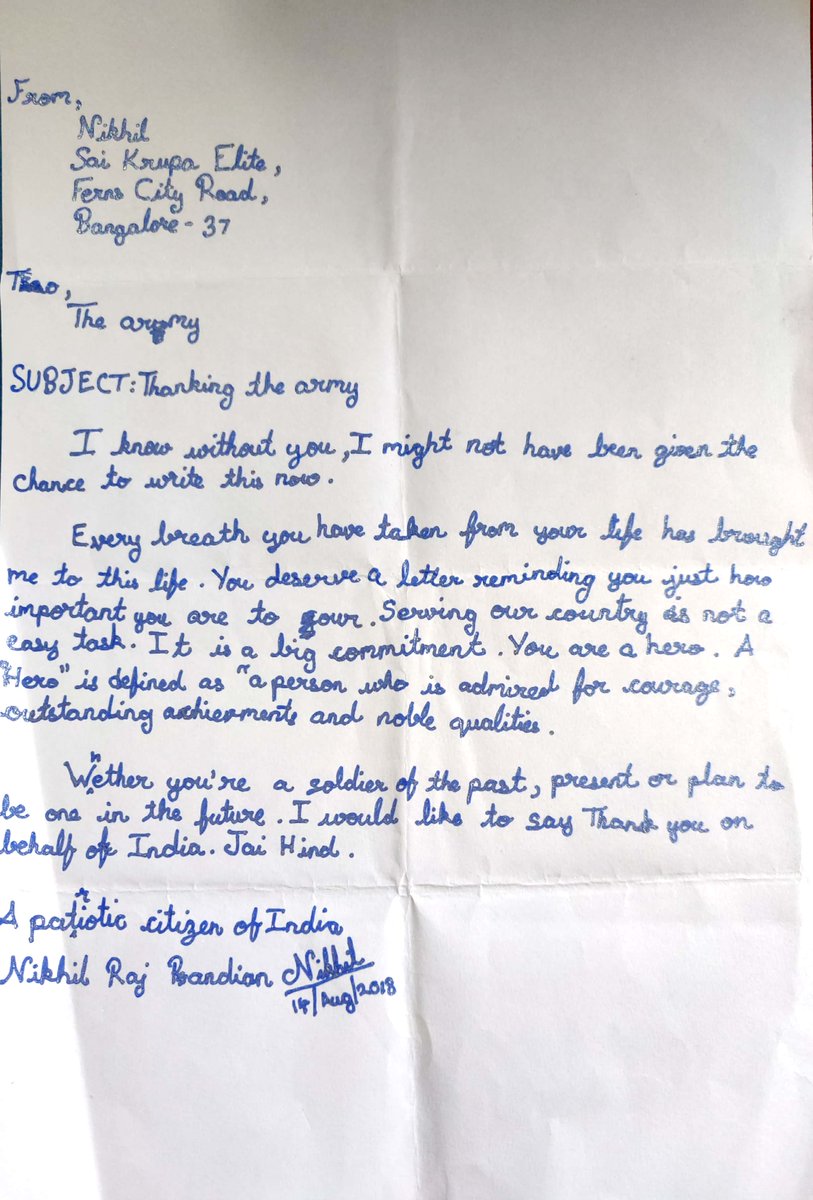 From,
Nikhil
Sai Krupa Elite,
Ferns City Road,
Bangalore - 37
To,
The army
SUBJECT: Thanking the army
I know without you, I might not have been given the
chance to write this now.
Every breath you have taken from your life has brought
me to this life. You deserve a letter reminding you just how
important you are to your. Serving our country is not a
easy task. It is a big commitment. You are a hero. A
"Hero" is defined as "a person who is admired for courage,
outstanding and noble qualities.
Whether you're a soldier of the past, present or plan to
be one in the future. I would like to say Thank you on
behalf of India. Jai Hind.
A patriotic citizen of India
Nikhil Raj Pandian Nikhil
14/Aug/2018